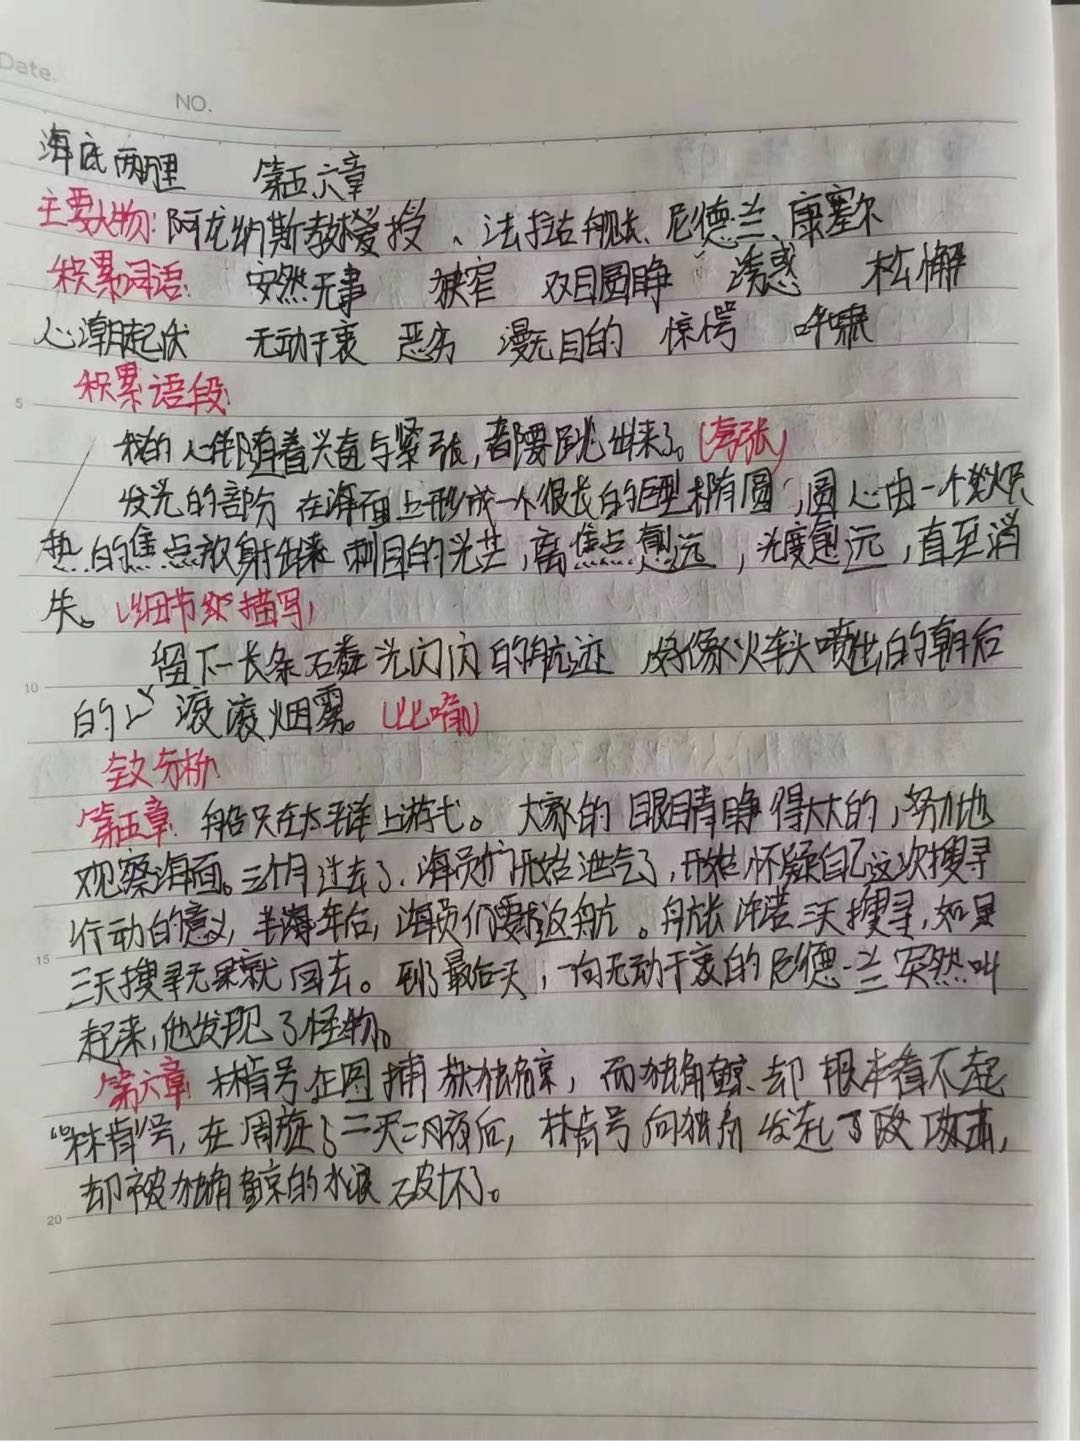 Date.
NO.
海底两万里 第五六章
主要人物:阿龙纳斯教授、法拉古舰长、尼德·兰、康塞尔
积累词语: 安然无事 狭窄 双目圆睁 诱惑 松懈
心潮起伏 无动于衷 恶劣 漫无目的 惊愕 呼啸
积累语段:
5
我的心伴随着兴奋与紧张,都要跳出来了。(夸张)
发光的部分在海面上形成一个很长的巨型椭圆,圆心由一个炽
热的焦点放射出来刺目的光芒,离焦点愈远,光度愈远,直至消
失。(细节描写)
留下一长条石粦光闪闪的航迹 好像火车头喷出的朝后
10
的 滚滚烟雾。(比喻)
全文分析:
第五章: 船只在太平洋上游弋。大家的眼睛睁得大大的,努力地
观察海面。三个月过去了,海员们开始泄气了,开始怀疑自己这次搜寻
行动的意义,半年后,海员们要求返航。舰长许诺三天搜寻,如果
15
三天搜寻无果就回去。到了最后天,一向无动于衷的尼德·兰突然叫
起来,他发现了怪物。
第六章: 林肯号在围捕独角鲸,而独角鲸却根本看不起
“林肯”号,在周旋了三天三夜后,林肯号向独角发起了攻击,
却被独角鲸的水浪破坏了。
20